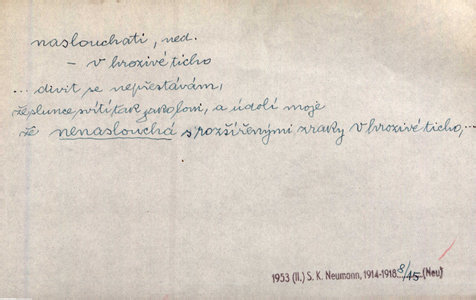 naslouchati, ned.
– v hrozivé ticho
... divit se nepřestávám,
že slunce svítí tak jako loni, a údolí moje
že nenaslouchá s rozšířenými zraky v hrozivé ticho,...
1953 (II.) S. K. Neumann, 1914-1918 8/45 (Neu)